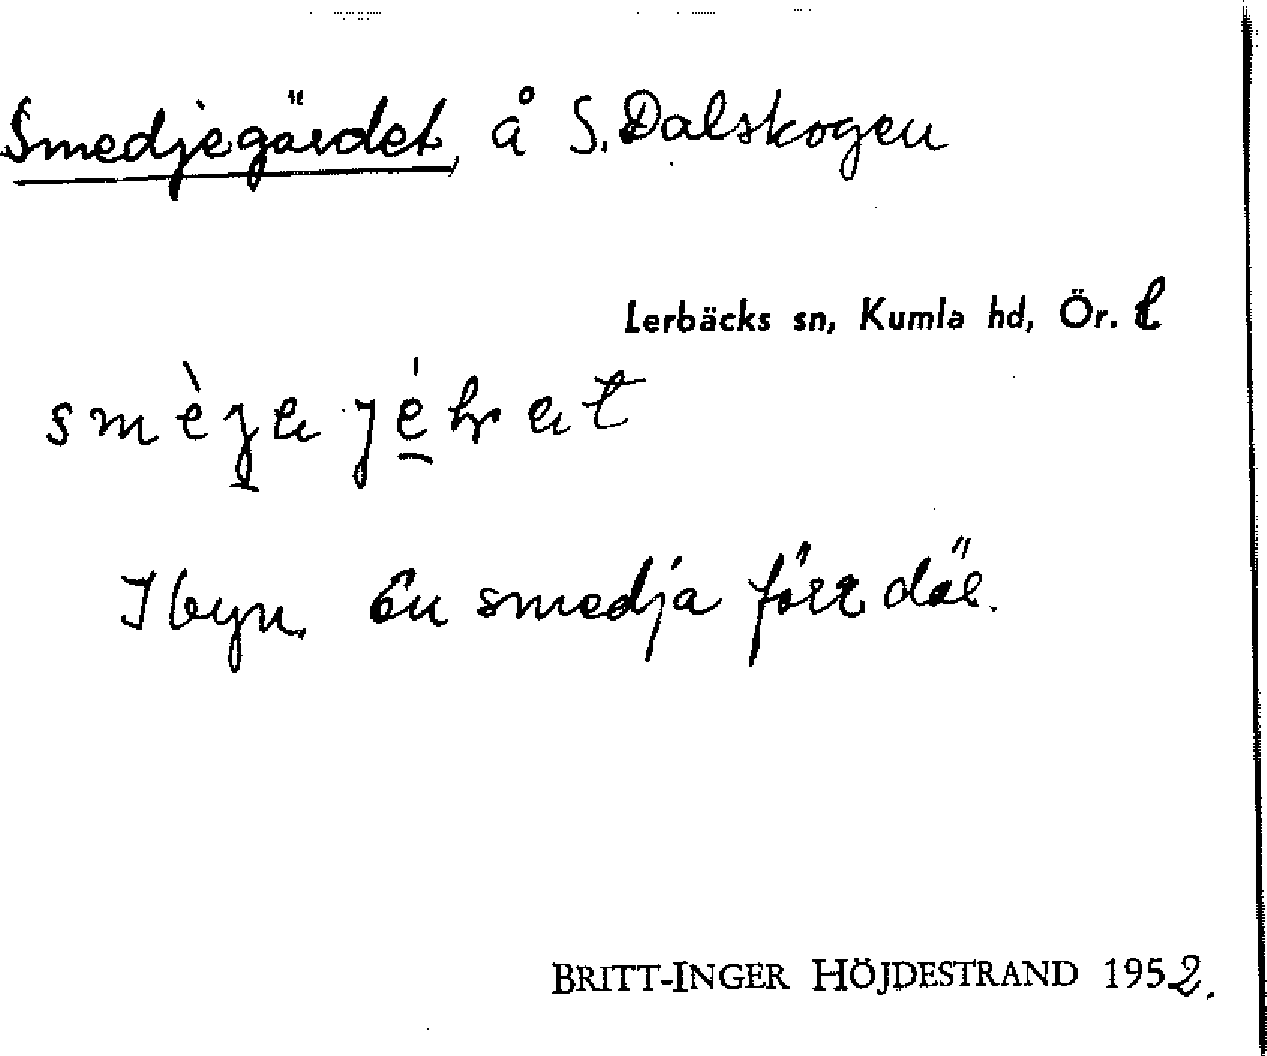 Smedjegärdet, å S. Dalskogen
Lerbäcks sn, Kumla hd, Ör. l
I byn. En smedja förr där.
BRITT-INGER HÖJDESTRAND 1952.